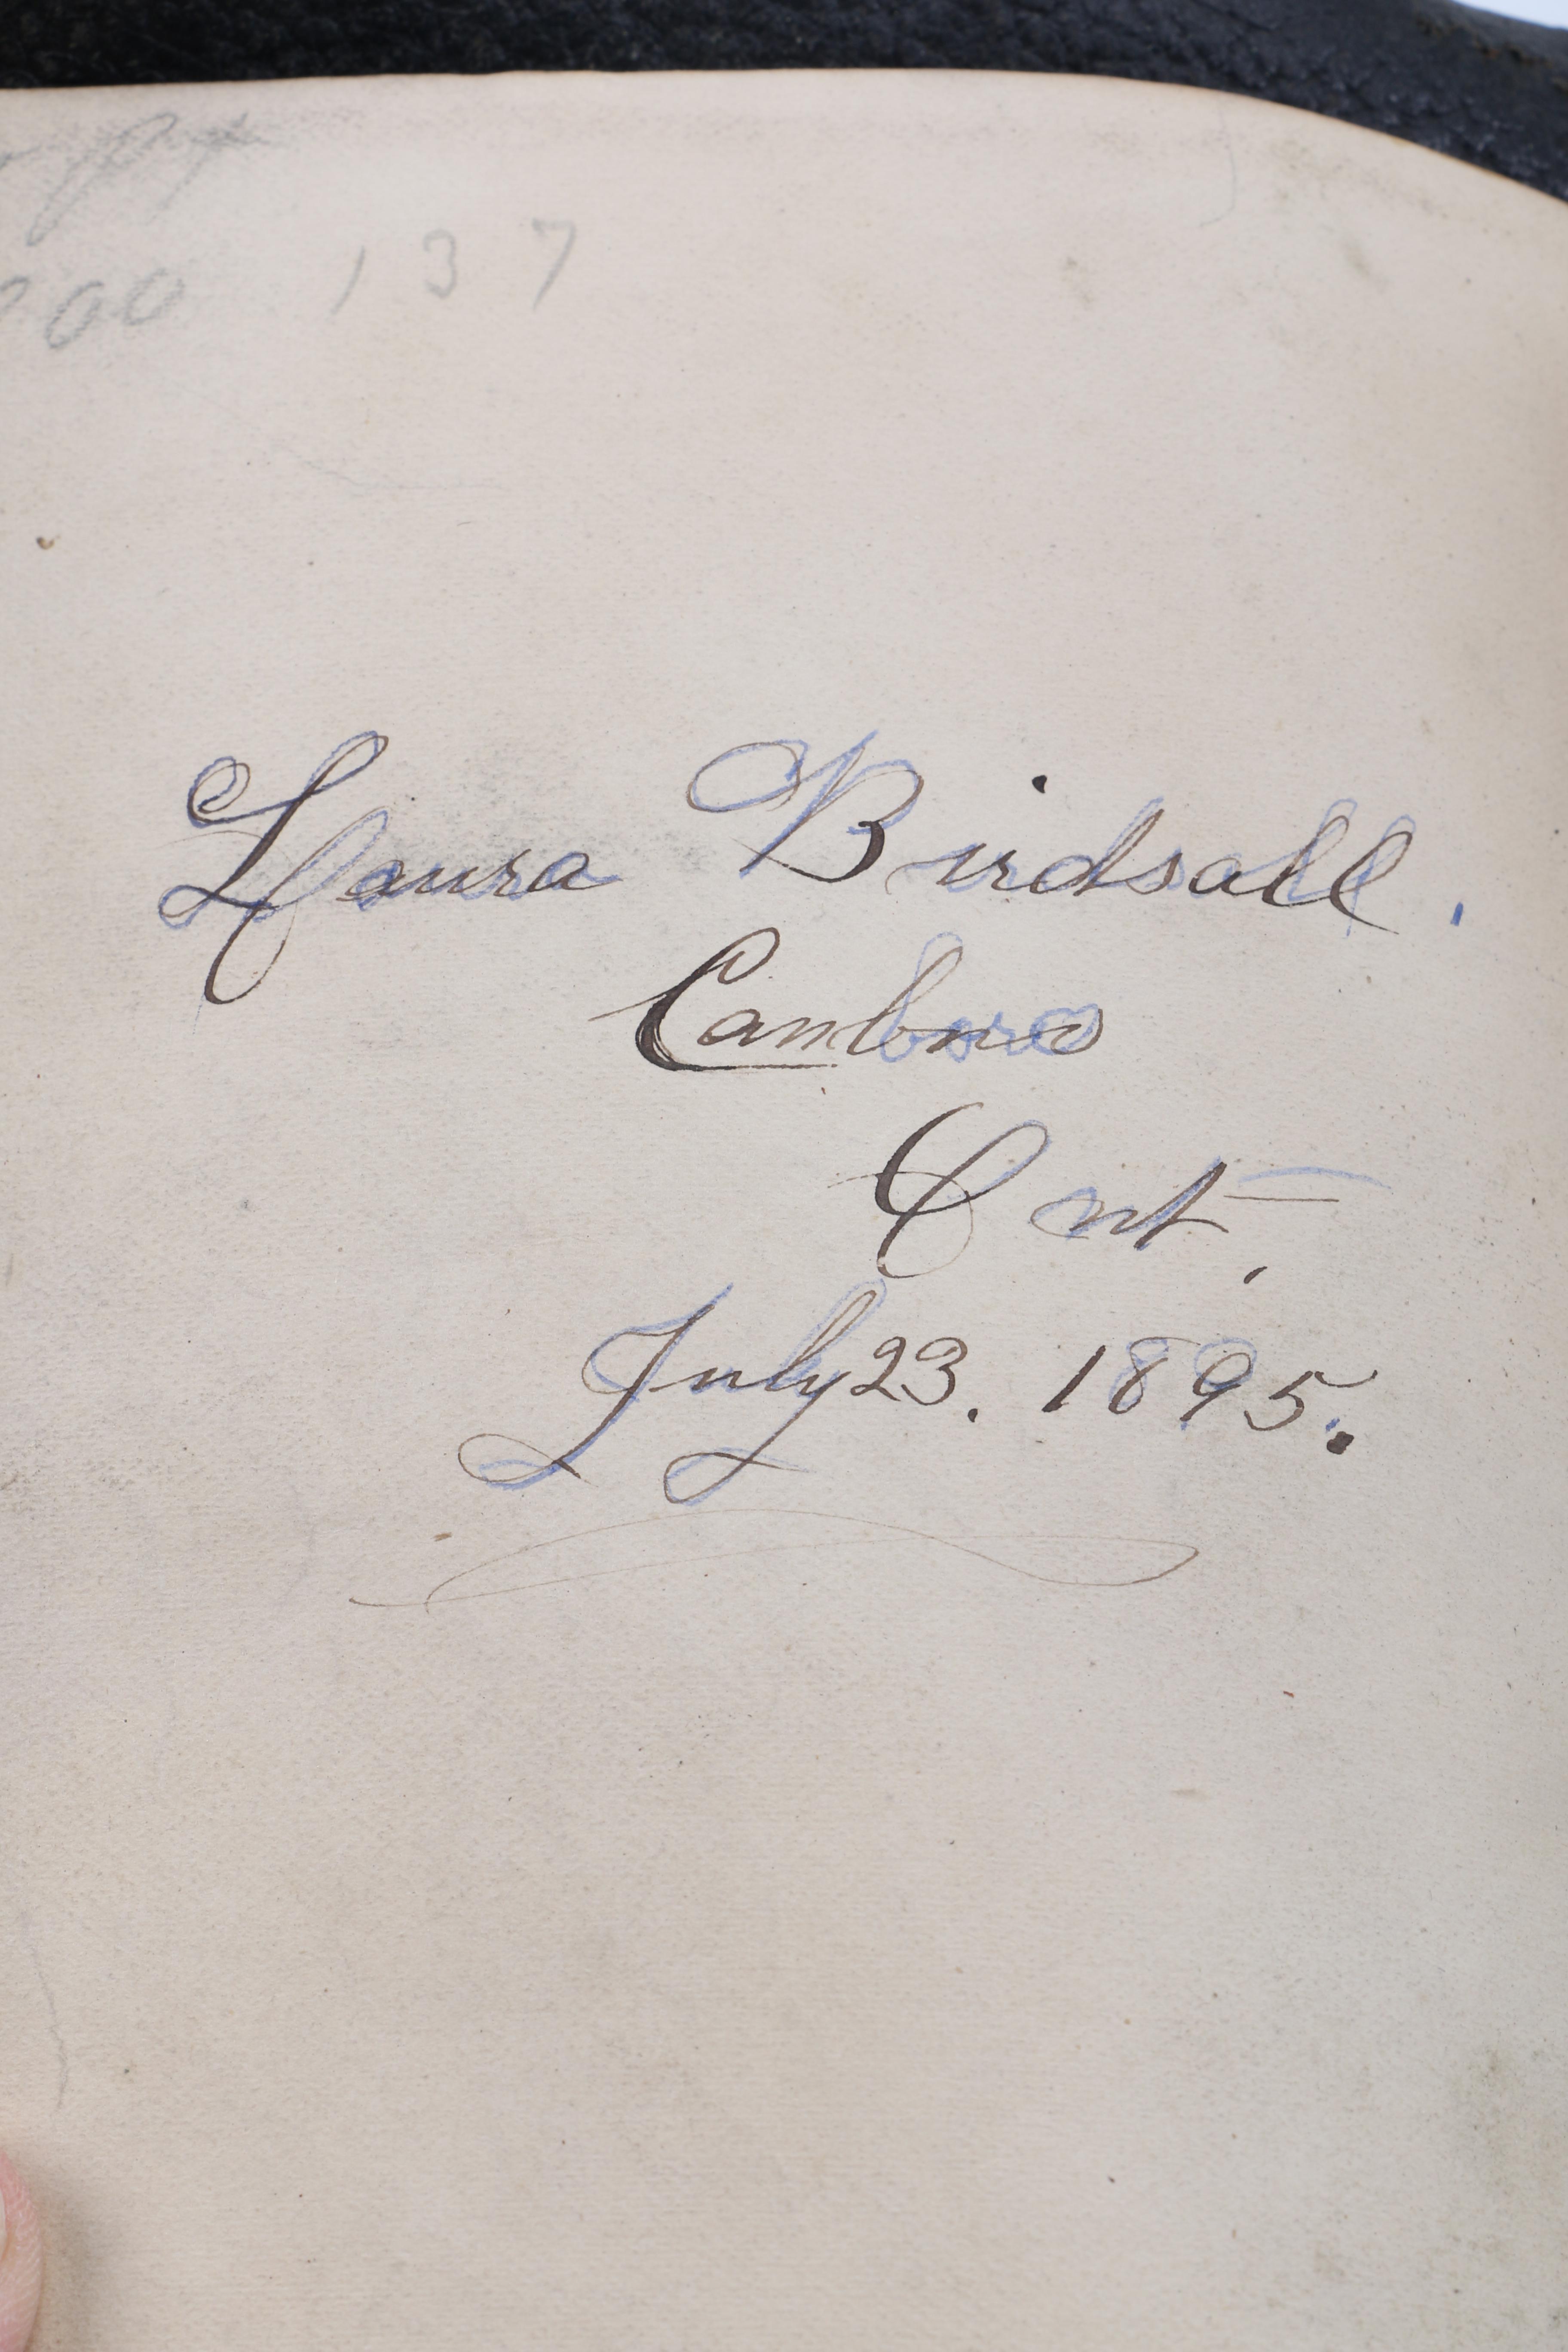 00 137
Laura Birdsall.
Canboro
Ont.
July 23. 1895.